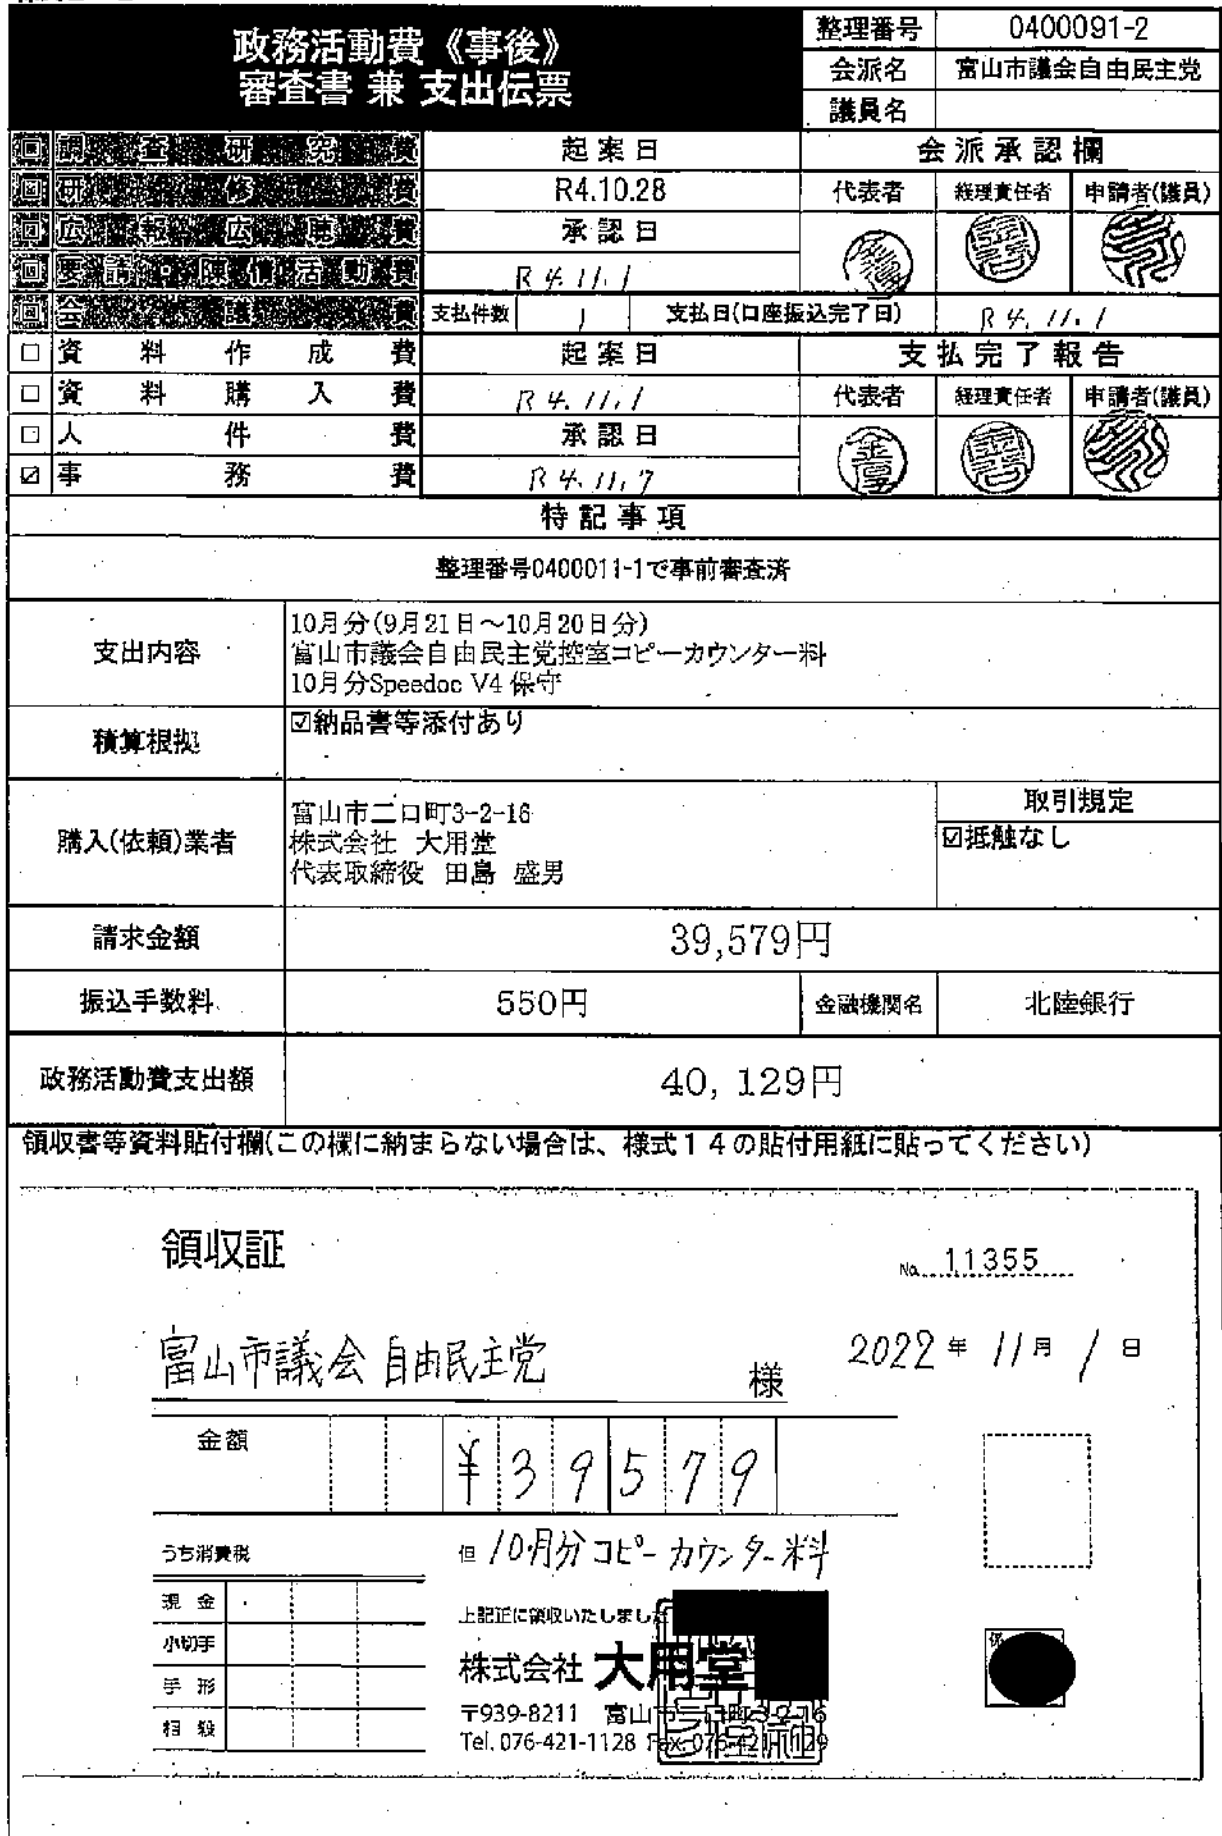 政務活動費《事後》
審査書 兼 支出伝票
整理番号 0400091-2
会派名 富山市議会自由民主党
議員名
調査研究費 起案日 会派承認欄
研修費 R4.10.28 代表者 経理責任者 申請者(議員)
広報広聴費 承認日
要請・陳情活動費 R4.11.1
会議費 支払件数 1 支払日(口座振込完了日) R4.11.1
□ 資料作成費 起案日 支払完了報告
□ 資料購入費 R4.11.1 代表者 経理責任者 申請者(議員)
□ 人件費 承認日
☑ 事務費 R4.11.7
特記事項
整理番号0400011-1で事前審査済
支出内容
10月分(9月21日～10月20日分)
富山市議会自由民主党控室コピーカウンター料
10月分Speedoc V4 保守
積算根拠 ☑納品書等添付あり
購入(依頼)業者
富山市二口町3-2-16
株式会社 大用堂
代表取締役 田島 盛男
取引規定
☑抵触なし
請求金額 39,579円
振込手数料 550円 金融機関名 北陸銀行
政務活動費支出額 40,129円
領収書等資料貼付欄(この欄に納まらない場合は、様式14の貼付用紙に貼ってください)
領収証
No. 11355
富山市議会 自由民主党 様
2022年 11月 1日
金額 ¥39579
うち消費税
但 10月分コピーカウンター料
現金
小切手
手形
相殺
上記正に領収いたしました
株式会社 大用堂
〒939-8211 富山市二口町3-2-16
Tel. 076-421-1128 Fax. 076-421-1129
係